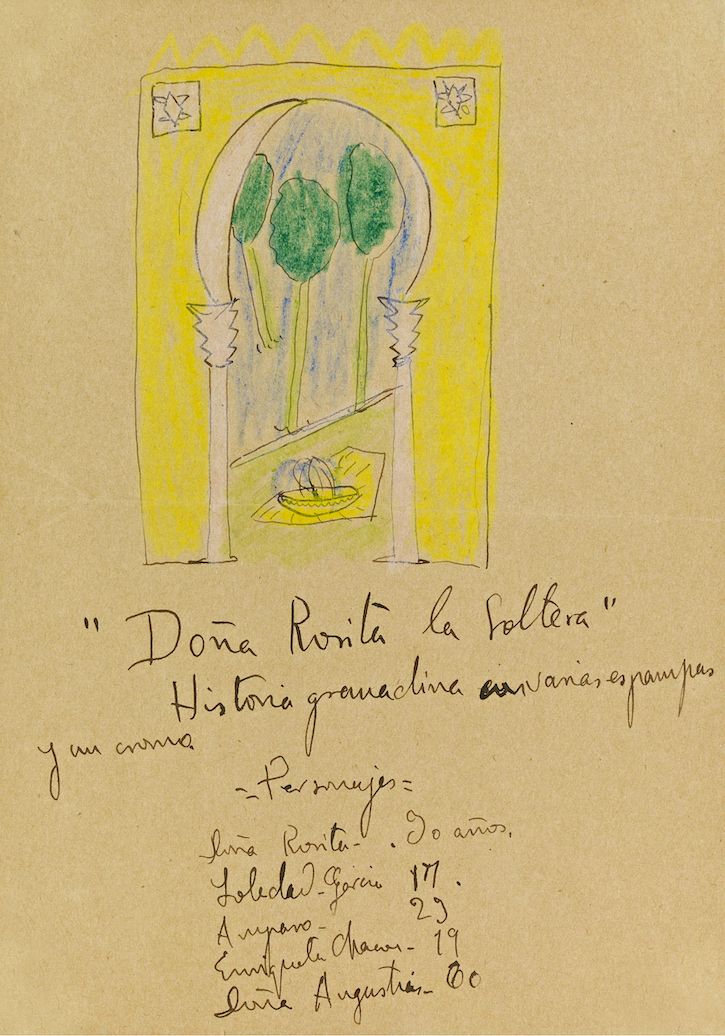 "Doña Rosita la Soltera"
Historia granadina en varias espampas
y un cromo
=Personajes=
Doña Rosita- . 30 años.
Soledad-Garcia 17.
Amparo- 23
Enriqueta Chacon- 19
Doña Angustias- 60